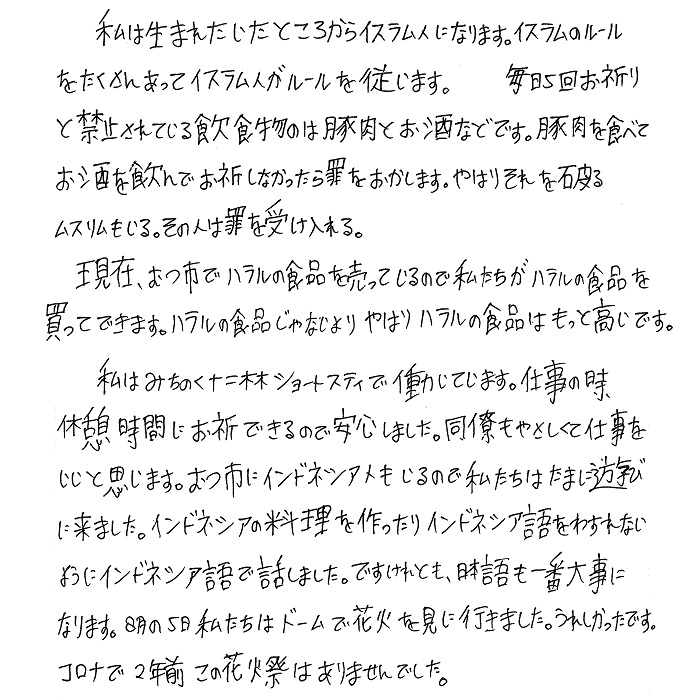 私は生まれたいたところからイスラム人になります。イスラムのルール
をたくさんあってイスラム人がルールを従います。 毎日5回お祈り
と禁止されている飲食物のは豚肉とお酒などです。豚肉を食べて
お酒を飲んでお祈しなかったら罪をおかします。やはりそれを破る
ムスリムもいる。その人は罪を受け入れる。
現在、むつ市でハラルの食品を売っているので私たちがハラルの食品を
買ってできます。ハラルの食品じゃないより やはりハラルの食品はもっと高いです。
私はみちのく十二林ショートスティで働かいています。仕事の時
休憩時間にお祈できるので安心しました。同僚もやさしくて仕事を
いいと思います。むつ市にインドネシア人もいるので私たちはたまに遊び
に来ました。インドネシアの料理を作ったりインドネシア語をわすれない
ようにインドネシア語で話しました。ですけれとも、日本語も一番大事に
なります。8月の5日私たちはドームで花火を見に行きました。うれしかったです。
コロナで2年前この花火祭はありませんでした。